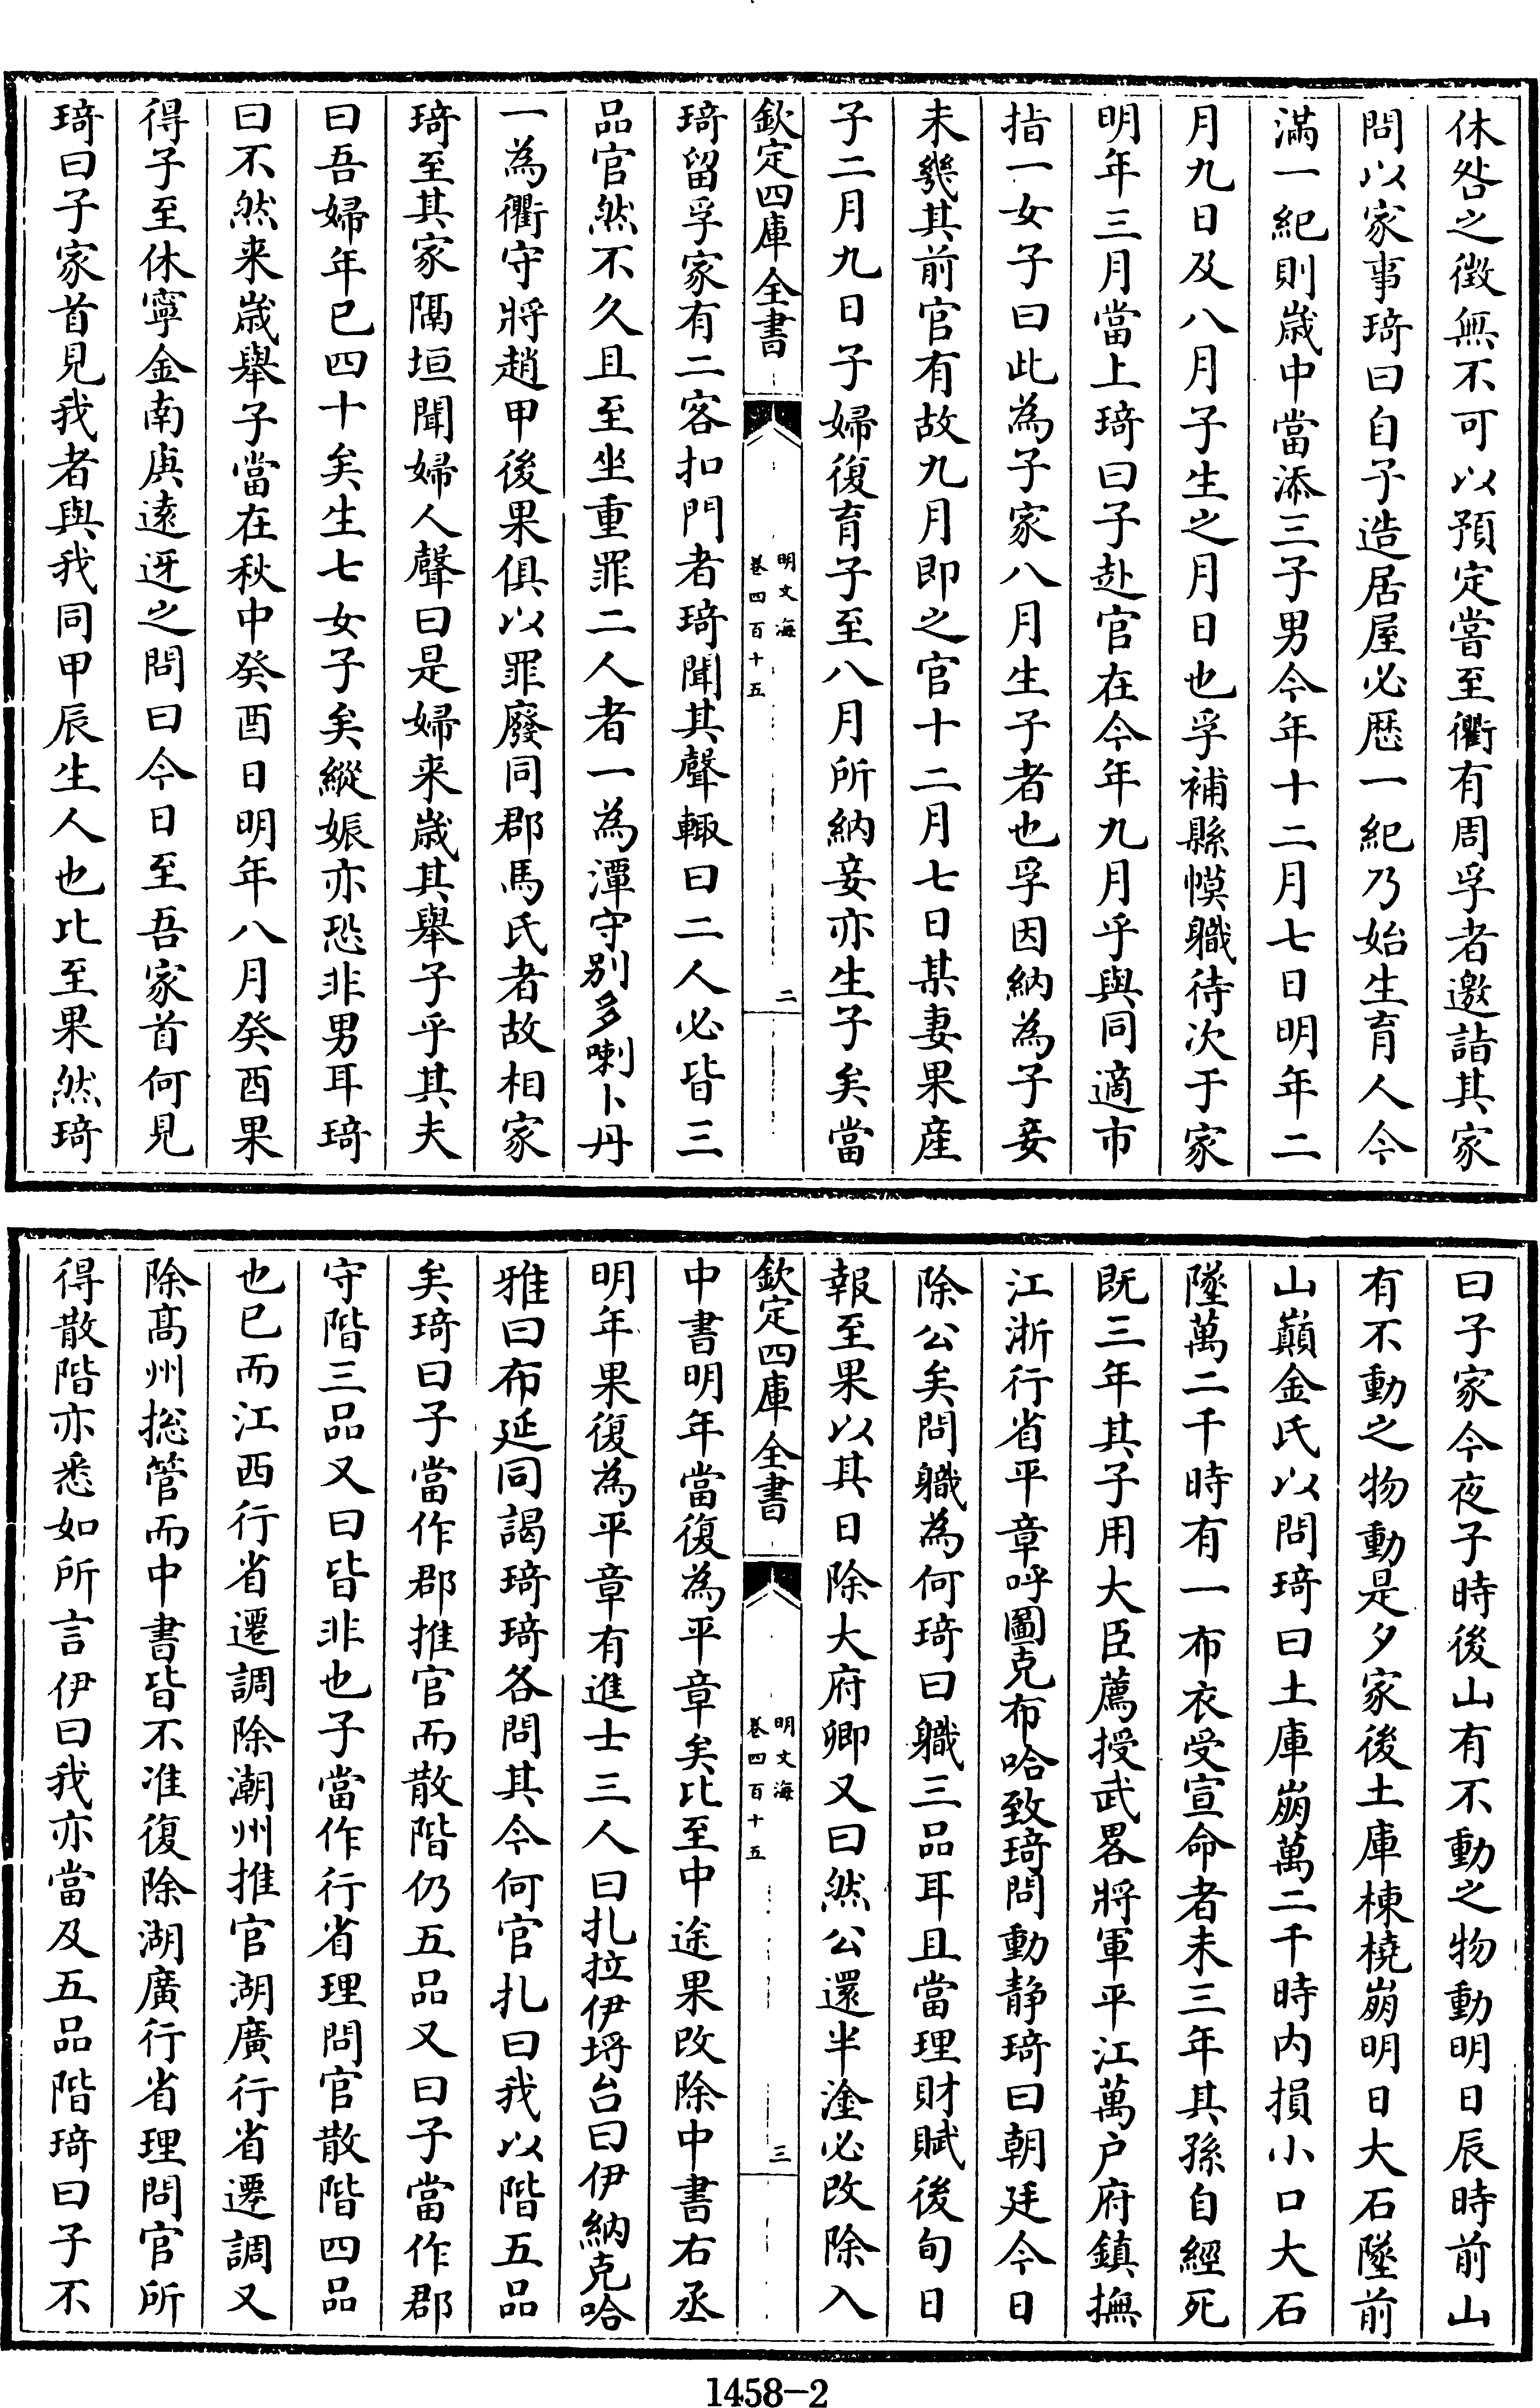 休咎之徴無不可以預定嘗至衢有周孚者邀詣其家
問以家事琦曰自子造居屋必厯一紀乃始生育人今
滿一紀則歳中當添三子男今年十二月七日明年二
月九日及八月子生之月日也孚補縣幙職待次于家
明年三月當上琦曰子赴官在今年九月乎與同適市
指一女子曰此為子家八月生子者也孚因納為子妾
未幾其前官有故九月即之官十二月七日某妻果産
子二月九日子婦復育子至八月所納妾亦生子矣當
欽定四庫全書
明文海
卷四百十五
二
琦留孚家有二客扣門者琦聞其聲輙曰二人必皆三
品官然不久且至坐重罪二人者一為潭守别多喇卜丹
一為衢守將趙甲後果俱以罪廢同郡馬氏者故相家
琦至其家隔垣聞婦人聲曰是婦来歳其舉子乎其夫
曰吾婦年已四十矣生七女子矣縱娠亦恐非男耳琦
曰不然来歳舉子當在秋中癸酉日明年八月癸酉果
得子至休寧金南庾逺迓之問曰今日至吾家首何見
琦曰子家首見我者與我同甲辰生人也比至果然琦
曰子家今夜子時後山有不動之物動明日辰時前山
有不動之物動是夕家後土庫棟橈崩明日大石墜前
山巔金氏以問琦曰土庫崩萬二千時内損小口大石
墜萬二千時有一布衣受宣命者未三年其孫自經死
既三年其子用大臣薦授武畧將軍平江萬户府鎮撫
江浙行省平章呼圖克布哈致琦問動静琦曰朝廷今日
除公矣問職為何琦曰職三品耳且當理財賦後旬日
報至果以其日除大府卿又曰然公還半塗必改除入
欽定四庫全書
明文海
卷四百十五
三
中書明年當復為平章矣比至中途果改除中書右丞
明年果復為平章有進士三人曰扎拉伊埒台曰伊納克哈
雅曰布延同謁琦琦各問其今何官扎曰我以階五品
矣琦曰子當作郡推官而散階仍五品又曰子當作郡
守階三品又曰皆非也子當作行省理問官散階四品
也已而江西行省遷調除潮州推官湖廣行省遷調又
除髙州捴管而中書皆不准復除湖廣行省理問官所
得散階亦悉如所言伊曰我亦當及五品階琦曰子不
1458-2